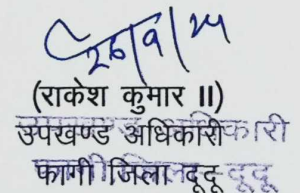 26/9/24
(राकेश कुमार II)
उपखण्ड अधिकारी
फागी जिला दूदू